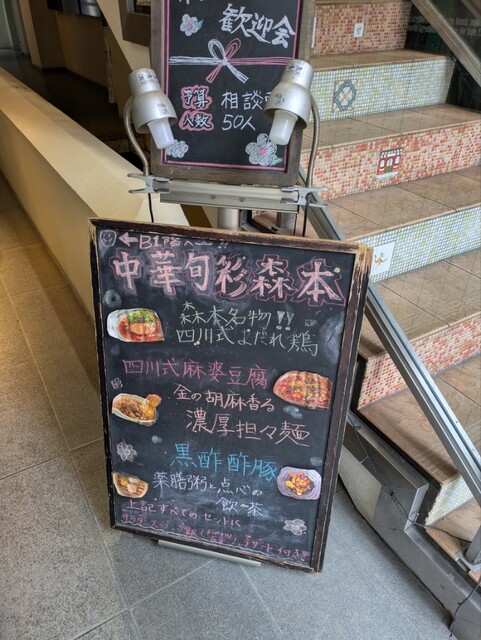 歓迎会
予算 相談
人数 50人
←B1階へ
中華旬彩森本
森本名物!!
四川式よだれ鶏
四川式麻婆豆腐
金の胡麻香る
濃厚担々麺
黒酢酢豚
薬膳粥と点心の
飲茶
上記すべてのセットに
サラダ スープ
デザート付き